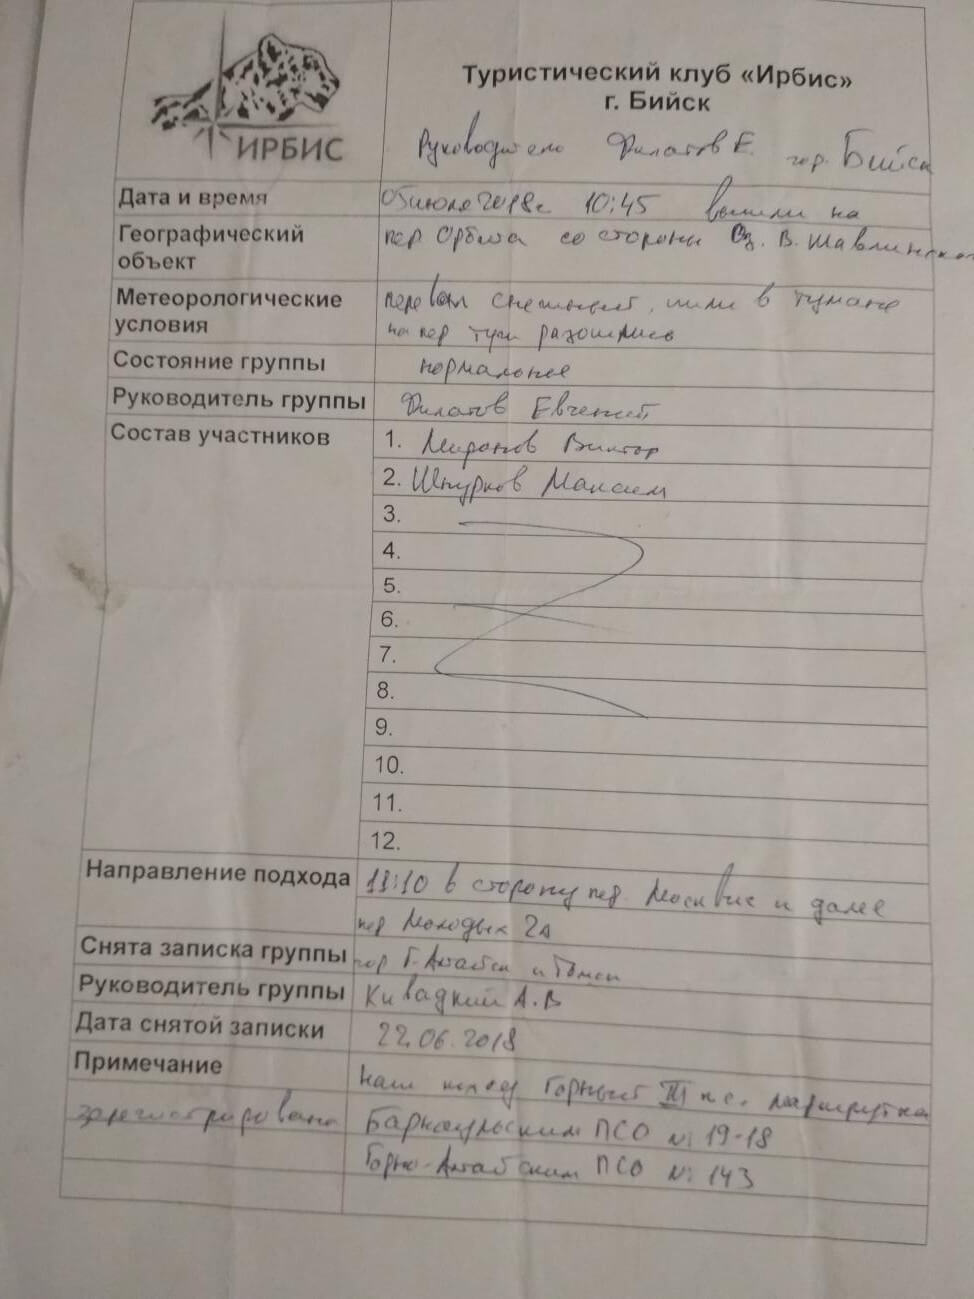 ИРБИС
Туристический клуб «Ирбис»
г. Бийск
Руководитель Филатов Е. гор. Бийск
Дата и время 05 июля 2018г 10:45 вышли на
Географический объект пер. Орбита со стороны оз. В. Шавлинское
Метеорологические условия перевал снежный, шли в тумане
на пер тучи разошлись
Состояние группы нормальное
Руководитель группы Филатов Евгений
Состав участников
1. Миронов Виктор
2. Шпурков Максим
3.
4.
5.
6.
7.
8.
9.
10.
11.
12.
Направление подхода 11:10 в сторону пер. Москвич и далее
пер Молодых 2А
Снята записка группы гор Г-Алтайск и Томск
Руководитель группы А.В
Дата снятой записки 22.06.2018
Примечание наш поход Горный III к.с. маршрутка
зарегистрирована Барнаульским ПСО №19-18
Горно-Алтайским ПСО № 143